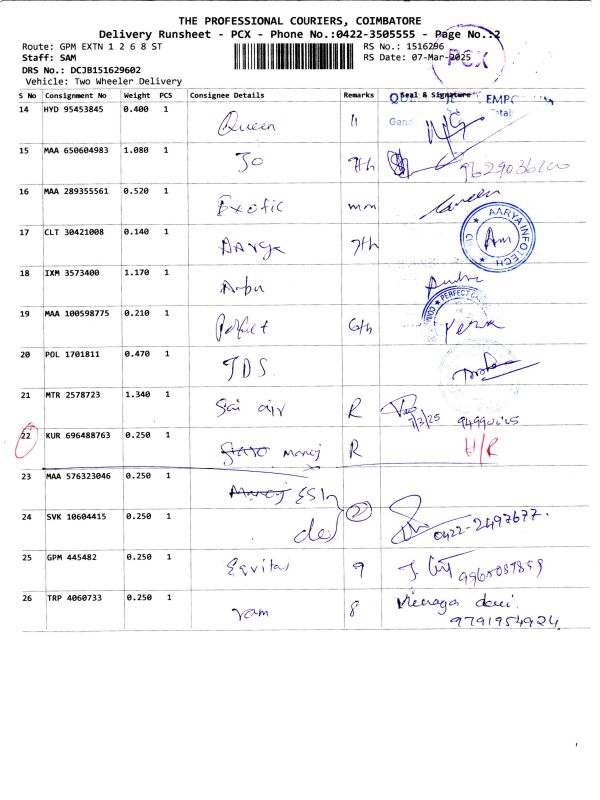 THE PROFESSIONAL COURIERS, COIMBATORE
Delivery Runsheet - PCX - Phone No.:0422-3505555 - Page No.:2
Route: GPM EXTN 1 2 6 8 ST
RS No.: 1516296
Staff: SAM
RS Date: 07-Mar-2025
PCX
DRS No.: DCJB151629602
Vehicle: Two Wheeler Delivery
S No Consignment No Weight PCS Consignee Details Remarks Seal & Signature
14 HYD 95453845 0.400 1 Queen 11
15 MAA 650604983 1.080 1 Jo 7th
16 MAA 289355561 0.520 1 Exotic mm
17 CLT 30421008 0.140 1 Aarya 7th AARYA INFOTECH
18 IXM 3573400 1.170 1
19 MAA 100598775 0.210 1 Perfect 6th PERFECT
20 POL 1701811 0.470 1 TDS
21 MTR 2578723 1.340 1 Sai air R 7/3/25
22 KUR 696488763 0.250 1 Manoj R H/R
23 MAA 576323046 0.250 1 Manoj ESI
24 SVK 10604415 0.250 1 des 2 0422-2497677.
25 GPM 445482 0.250 1 Equitas 9
26 TRP 4060733 0.250 1 ram 8 devi.
9791954924